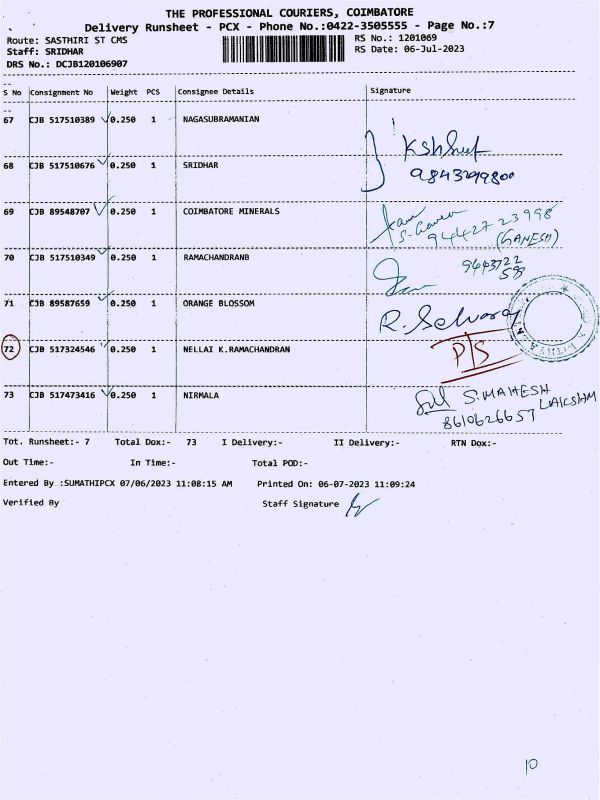 THE PROFESSIONAL COURIERS, COIMBATORE
Delivery Runsheet - PCX - Phone No.:0422-3505555 - Page No.:7
Route: SASTHIRI ST CMS RS No.: 1201069
Staff: SRIDHAR RS Date: 06-Jul-2023
DRS No.: DCJB120106907
S No Consignment No Weight PCS Consignee Details Signature
67 CJB 517510389 0.250 1 NAGASUBRAMANIAN
68 CJB 517510676 0.250 1 SRIDHAR
9843299800
69 CJB 89548707 0.250 1 COIMBATORE MINERALS
94427 23998
(GANESH)
70 CJB 517510349 0.250 1 RAMACHANDRANB
9443722
593
71 CJB 89587659 0.250 1 ORANGE BLOSSOM
R. Selvaraj
72 CJB 517324546 0.250 1 NELLAI K.RAMACHANDRAN
P/S
73 CJB 517473416 0.250 1 NIRMALA
S.MAHESH
LAKSHMI
8610626657
Tot. Runsheet:- 7 Total Dox:- 73 I Delivery:- II Delivery:- RTN Dox:-
Out Time:- In Time:- Total POD:-
Entered By :SUMATHIPCX 07/06/2023 11:08:15 AM Printed On: 06-07-2023 11:09:24
Verified By Staff Signature
10